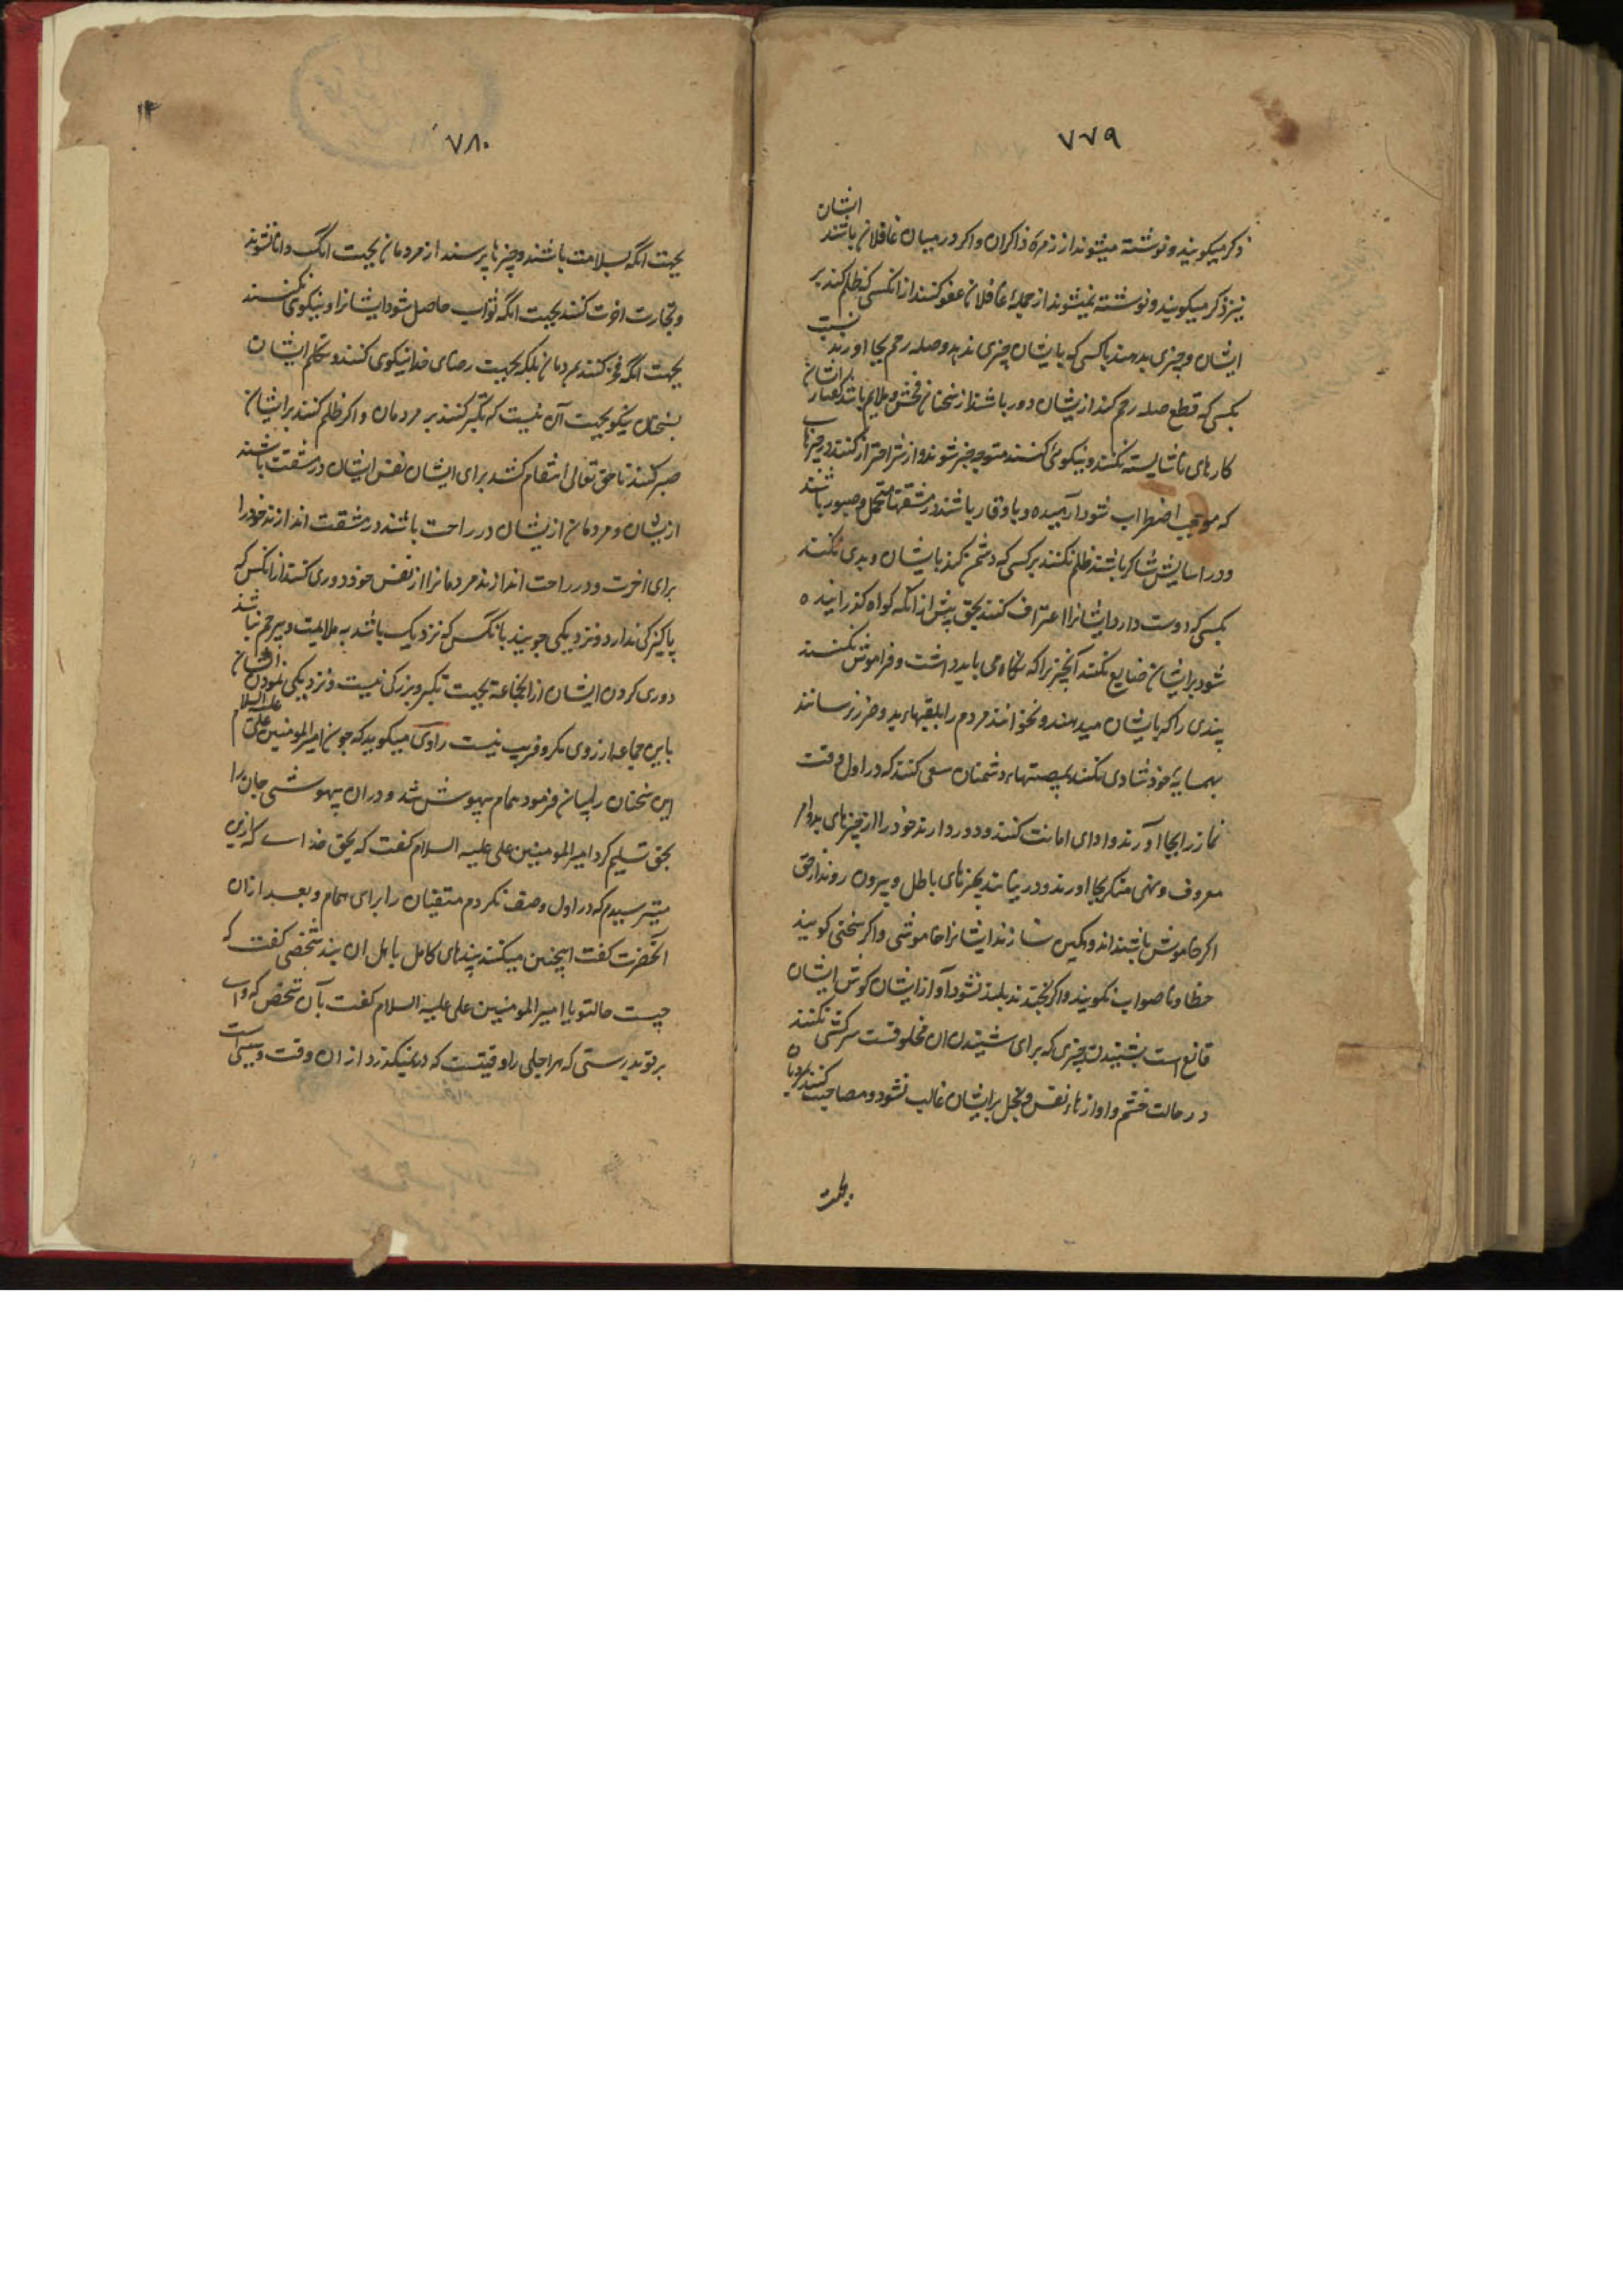 ۷۷۹
ذکر میکویند و نوشته میشوند از زمرهٔ ذاکران و اکر در میان غافلان باشند ایشان
نیز ذکر میکویند و نوشته نمیشوند از جملهٔ غافلان عفو کنند از انکسی که ظلم کند بر
ایشان و چیزی بدهند باکسی که بایشان چیزی ندهد و صله رحم بجا اورند نسبت
بکسی که قطع صله رحم کند ازیشان دور باشند از سخنان فحش و ملایم باشد کفتار ایشان
کارهای ناشایسته نکنند و نیکوئی کنند متوجه خیر شوند و از شر احتراز کنند در چیزهای
که موجب اضطراب شود آرمیده و با وقار باشند در مشقتها متحمل و صبور باشند
و در اسایش شاکر باشند ظلم نکنند برکسی که دشمنی کند بایشان و بدی نکنند
بکسی که دوست دارد ایشانرا اعتراف کنند بحق پیش از آنکه کواه کذرانیده
شود برایشان ضایع نکنند آنچیزیرا که نکاه می باید داشت و فراموش نکنند
پندی را که بایشان میدهند و نخوانند مردم را بلقبهاء بد و ضرر نرسانند
بهمسایهٔ خود شادی نکنند بمصیبتهاء دشمنان سعی کنند که در اول وقت
نماز را بجا آورند و ادای امانت کنند و دور دارند خود را از چیزهای بد و امر
معروف و نهی منکر بجا اورند و در نیایند بچیزهای باطل و بیرون روند از حق
اکر خاموش باشند اندوهکین نسازند ایشانرا خاموشی و اکر سخنی کویند
خطا و ناصواب نکویند و اکر بخندند بلند نشود آواز ایشان کوش ایشان
قانع است بشنیدن چیزی که برای شنیدن ان مخلوقست سرکشی نکنند
در حالت خشم و اوازهاء نفس و بخل برایشان غالب نشود و مصاحبت کنند بمردمان
بجهت
۷۸۰
بجهت انکه بسلامت باشند و چیزها پرسند از مردمان بجهت انک دانا شوند
و تجارت اخرت کنند بجهت انکه ثواب حاصل شود ایشانرا و نیکوی نکنند
بجهت انکه فخر کنند بمردمان بلکه بجهت رضای خدا نیکوی کنند و تکلم ایشان
بسخنان نیکو بجهت آن نیست که تکبر کنند بر مردمان و اکر ظلم کنند برایشان
صبر کنند تا حق تعالی انتقام کشد برای ایشان نفس ایشان در مشقت باشند
ازیشان و مردمان ازیشان در راحت باشند در مشقت اندازند خود را
برای اخرت و در راحت اندازند مردمانرا از نفس خود دوری کنند از انکس که
پاکیزکی ندارد و نزدیکی جویند بانکس که نزدیک باشد به ملایمت و بیرحم نباشد
دوری کردن ایشان از انجماعه بجهت تکبر و بزرکی نیست و نزدیکی نمودن ایشان
باین جماعه از روی مکر و فریب نیست راوی میکوید که چون امیرالمومنین علی علیه السلام
این سخنان را بیان فرمود همام بیهوش شد و در ان بیهوشی جان را
بحق تسلیم کرد امیرالمومنین علی علیه السلام کفت که بحق خدای که ازین
میترسیدم که در اول وصف نکردم متقیان را برای همام و بعد ازان
آنحضرت کفت اینچنین میکنند پندهای کامل باهل ان پند شخصی کفت که
چیست حال تو یا امیرالمومنین علی علیه السلام کفت بآن شخص که وای
بر تو بدرستی که هر اجلی را وقتیست که در نمیکذرد از ان وقت و سببی است